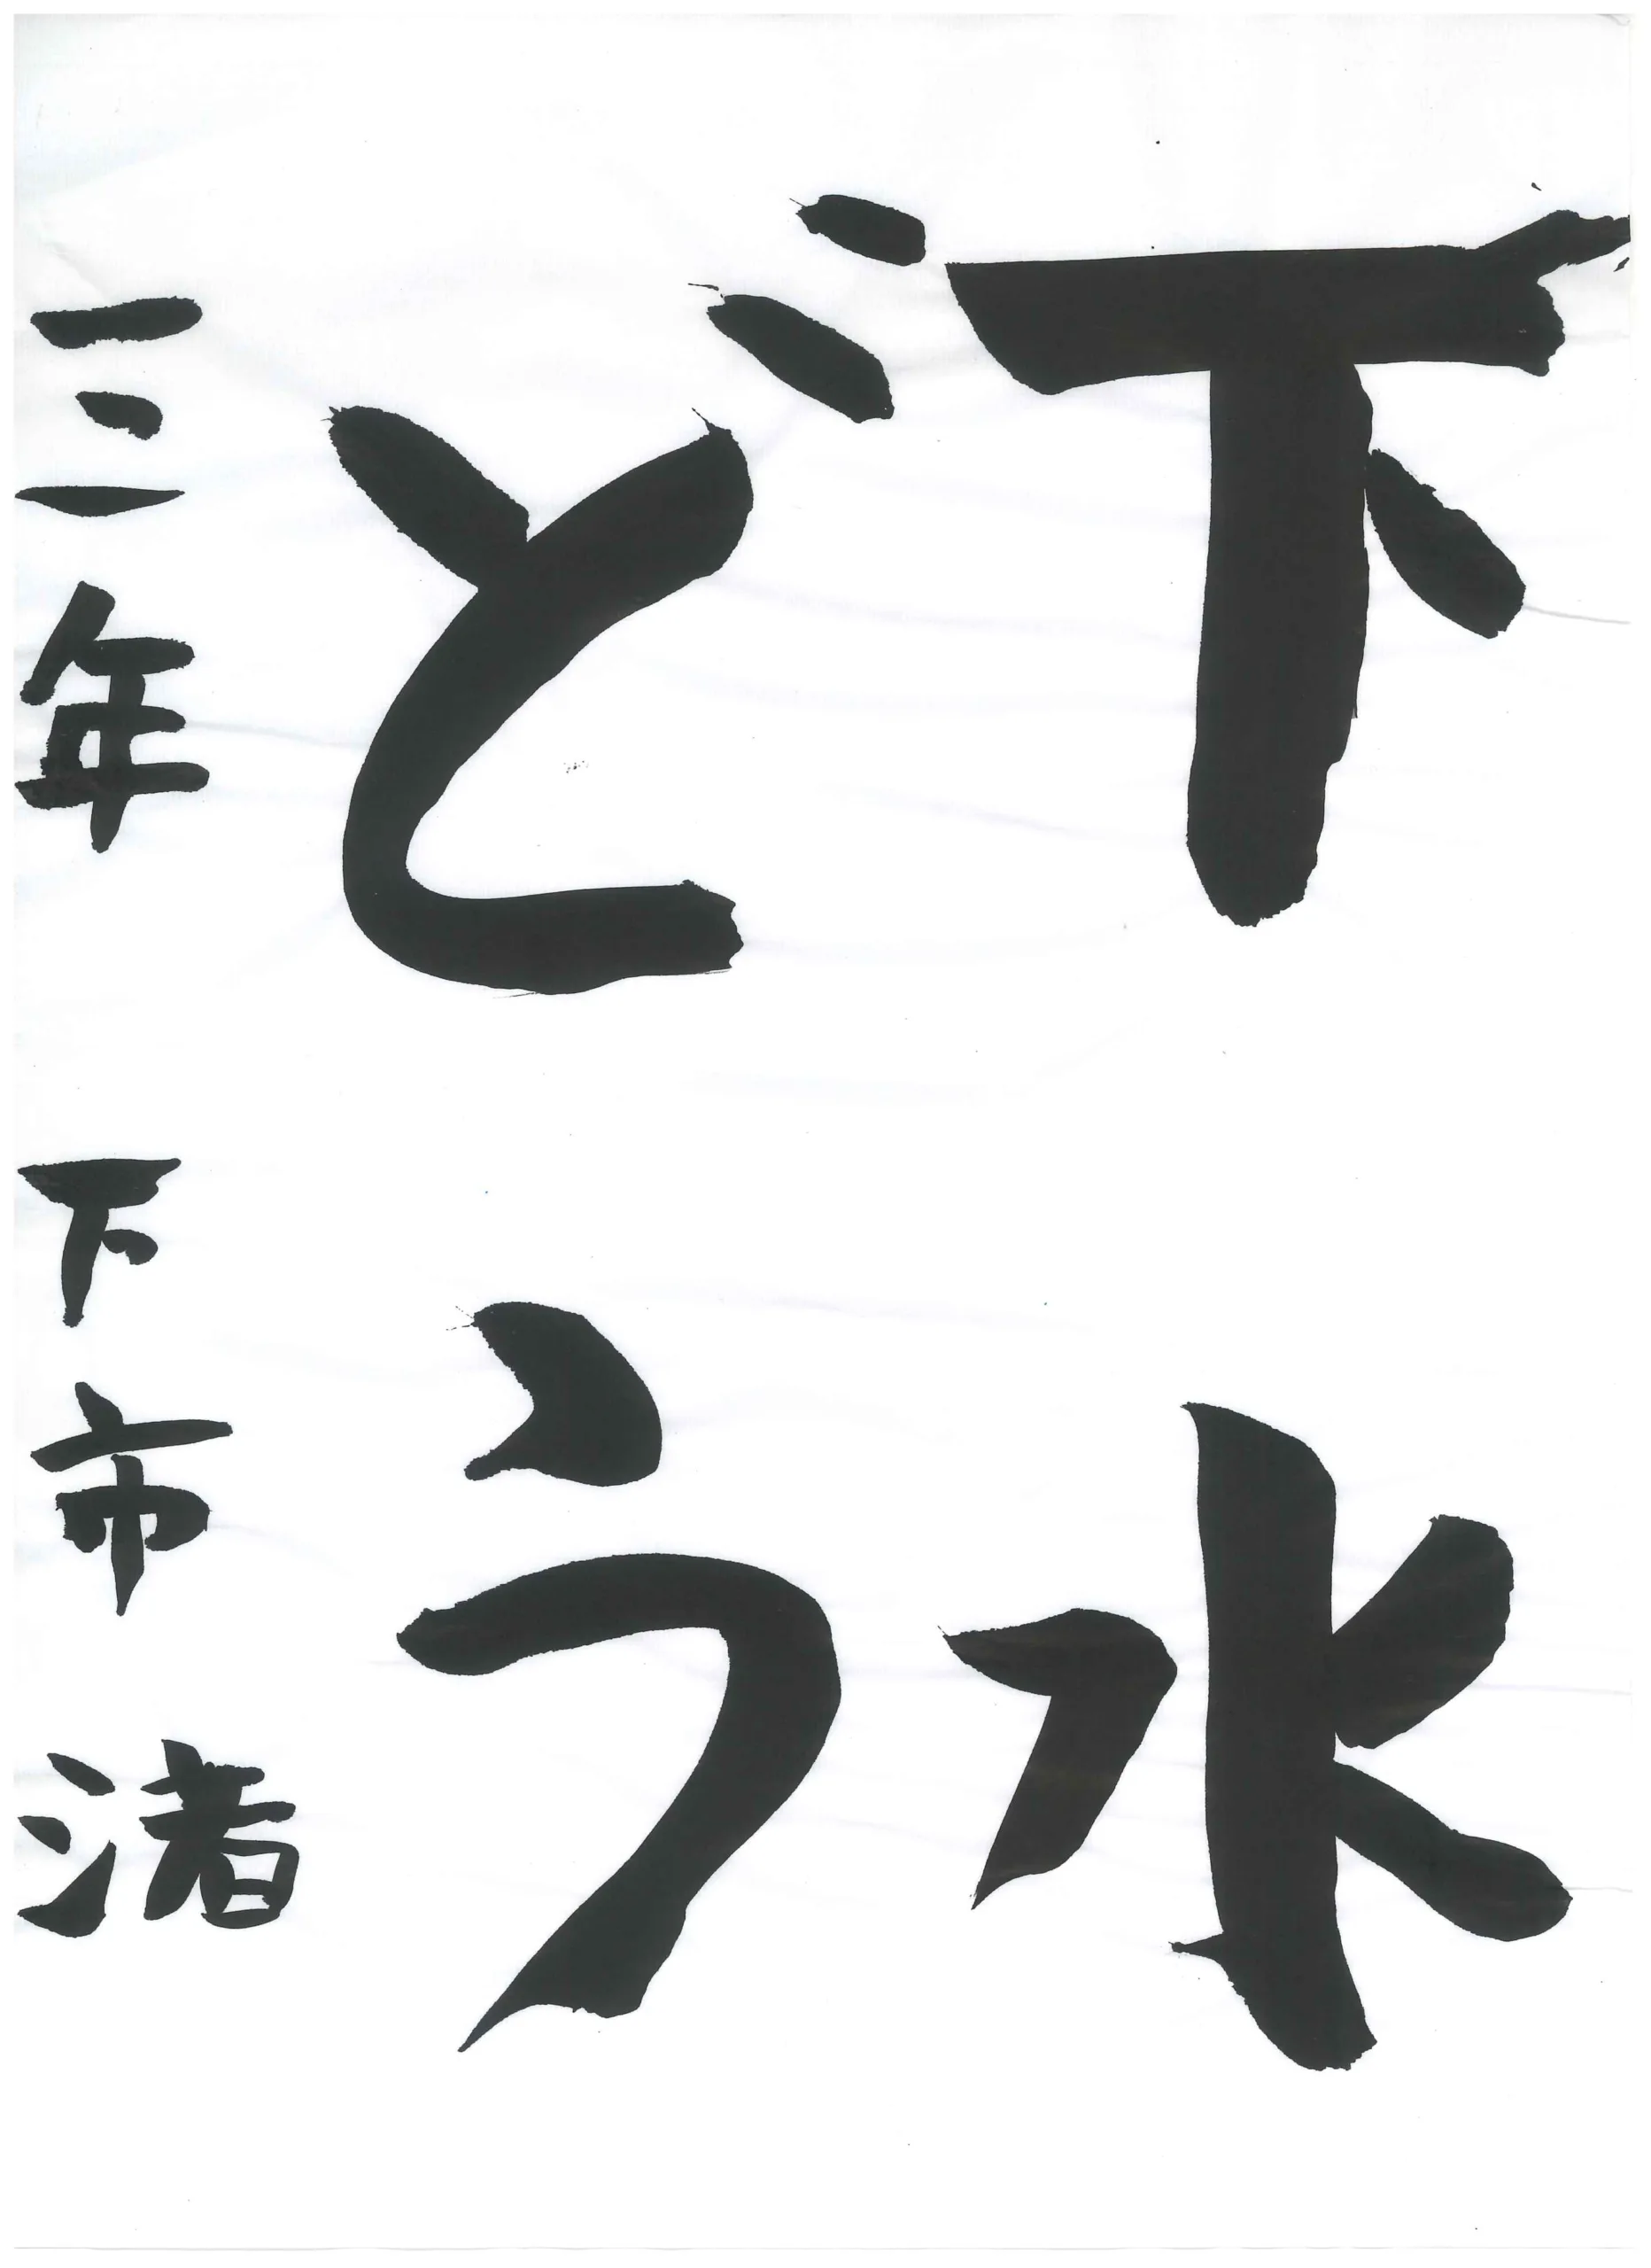 下水
どう
三年 下市渚